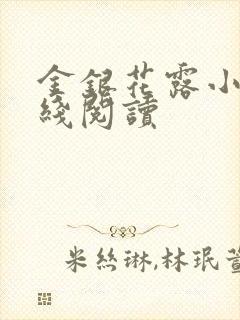 金銀花露小
綫閱讀
米絲琳,林珉萱